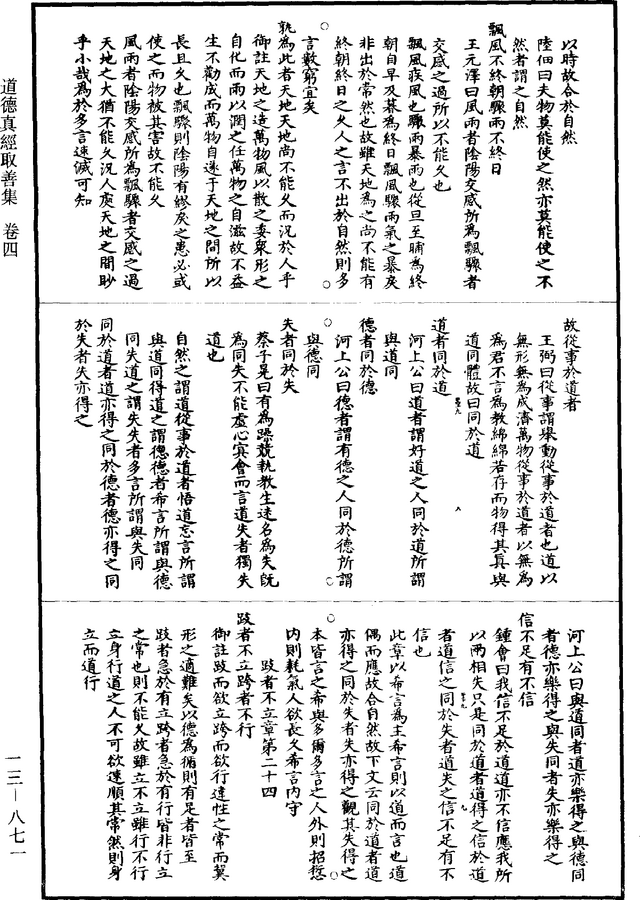 以時故合於自然
陸佃曰夫物莫能使之然亦莫能使之不
然者謂之自然
飄風不終朝驟雨不終日
王元澤曰風雨者陰陽交感所為飄驟者
交感之過所以不能久也
飄風疾風也驟雨暴雨也從旦至晡為終
朝自早及暮為終日飄風驟雨氣之暴戾
非出於常然也故雖天地為之尚不能有
終朝終日之久人之言不出於自然則多
言數窮宜矣
孰為此者天地天地尚不能久而況於人乎
御註天地之造萬物風以散之委眾形之
自化而雨以潤之任萬物之自滋故不益
生不勸成而萬物自遂于天地之間所以
長且久也飄驟則陰陽有繆戾之患必或
使之而物被其害故不能久
風雨者陰陽交感所為飄驟者交感之過
天地之大猶不能久況人處天地之間眇
乎小哉為於多言速滅可知
故從事於道者
王弼曰從事謂舉動從事於道者也道以
無形無為成濟萬物從事於道者以無為
為君不言為教綿綿若存而物得其真與
道同體故曰同於道
道者同於道
河上公曰道者謂好道之人同於道所謂
與道同
德者同於德
河上公曰德者謂有德之人同於德所謂
與德同
失者同於失
蔡子晃曰有為躁競執教生迷名為失既
為同失不能虛心冥會而言道失者獨失
道也
自然之謂道從事於道者悟道忘言所謂
與道同得道之謂德德者希言所謂與德
同失道之謂失失者多言所謂與失同
同於道者道亦得之同於德者德亦得之同
於失者失亦得之
河上公曰與道同者道亦樂得之與德同
者德亦樂得之與失同者失亦樂得之
信不足有不信
鍾會曰我信不足於道道亦不信應我所
以兩相失只是同於道者道得之信於道
者道信之同於失者道失之信不足有不
信也
此章以希言為主希言則以道而言也道
偶而應故合自然故下文云同於道者道
亦得之同於失者失亦得之觀其失得之
本皆言之希與多爾多言之人外則招愆
內則耗氣人欲長久希言內守
跂者不立章第二十四
跂者不立跨者不行
御註跂而欲立跨而欲行違性之常而冀
形之適難矣以德為循則有足者皆至
跂者急於有立跨者急於有行皆非行立
之常也則不能久故雖立不立雖行不行
立身行道之人不可欲速順其常然則身
立而道行
道德真經取善集 卷四
一三—八七一